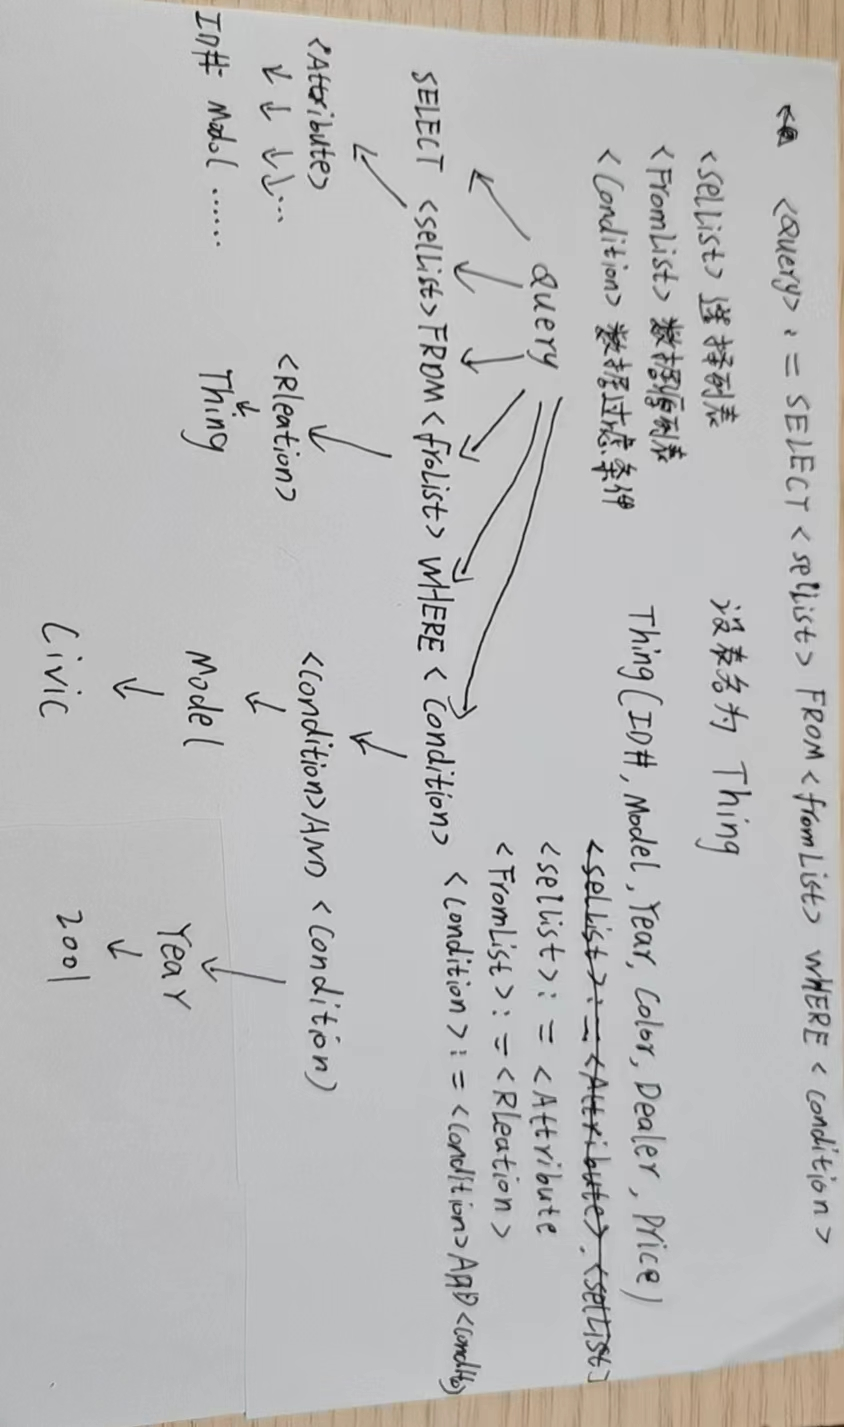 <Query> := SELECT <selList> FROM <fromList> WHERE <condition>
<selList> 选择列表
<FromList> 数据源列表
<Condition> 数据过滤条件
设表名为 Thing
Thing(ID#, Model, Year, Color, Dealer, Price)
<selList> := <Attribute>, <selList>
<selList> := <Attribute
<FromList> := <Rleation>
<condition> := <condition> AAD <condito>
Query
SELECT <selList> FROM <froList> WHERE <Condition>
<Attribute>
<Rleation>
<condition> AND <condition)
ID# Model ......
Thing
Model
Year
Civic
2001